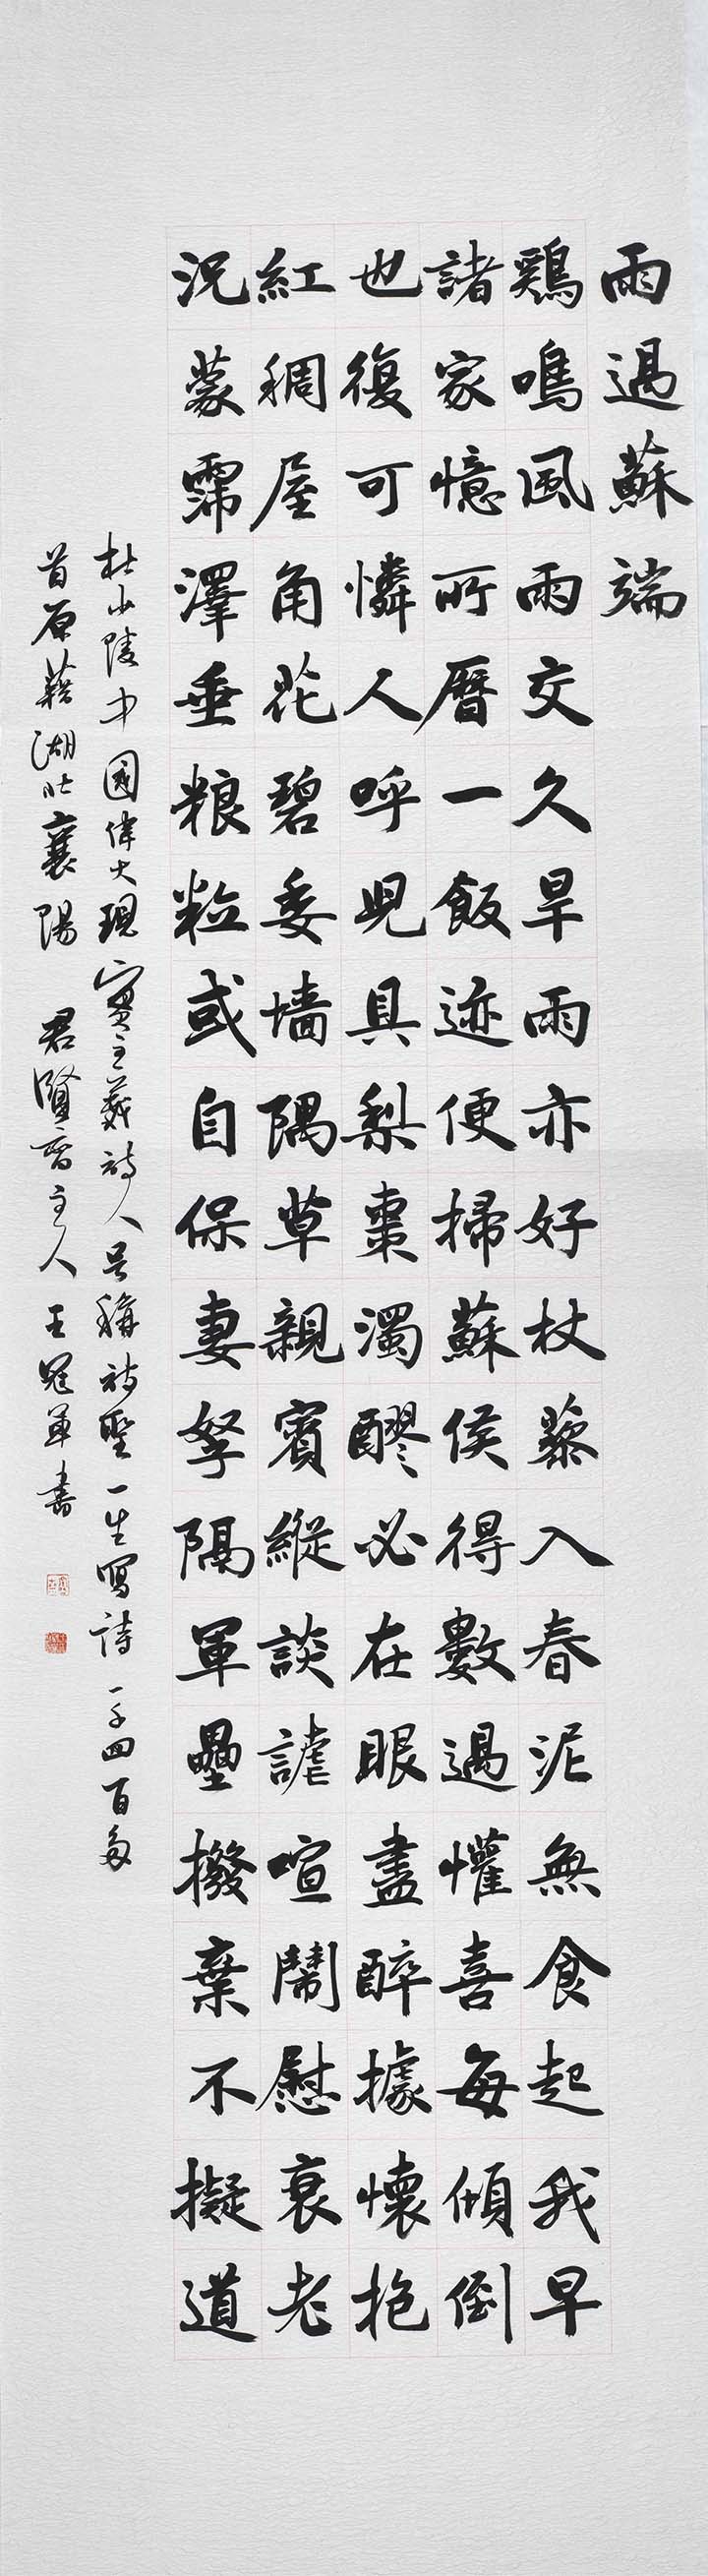 雨過蘇端
鷄鳴風雨交久旱雨亦好杖藜入春泥無食起我早
諸家憶所曆一飯迹便掃蘇侯得數過懽喜每傾倒
也復可憐人呼児具梨棗濁醪必在眼盡醉攄懷抱
紅稠屋角花碧委墻隅草親賓縱談謔喧鬧慰衰老
況蒙霈澤垂粮粒或自保妻孥隔軍壘撥棄不擬道
杜少陵中國偉大現實主義詩人号稱詩聖一生寫詩一千四百多
首原藉湖北襄陽 君賢齋主人王冠軍書